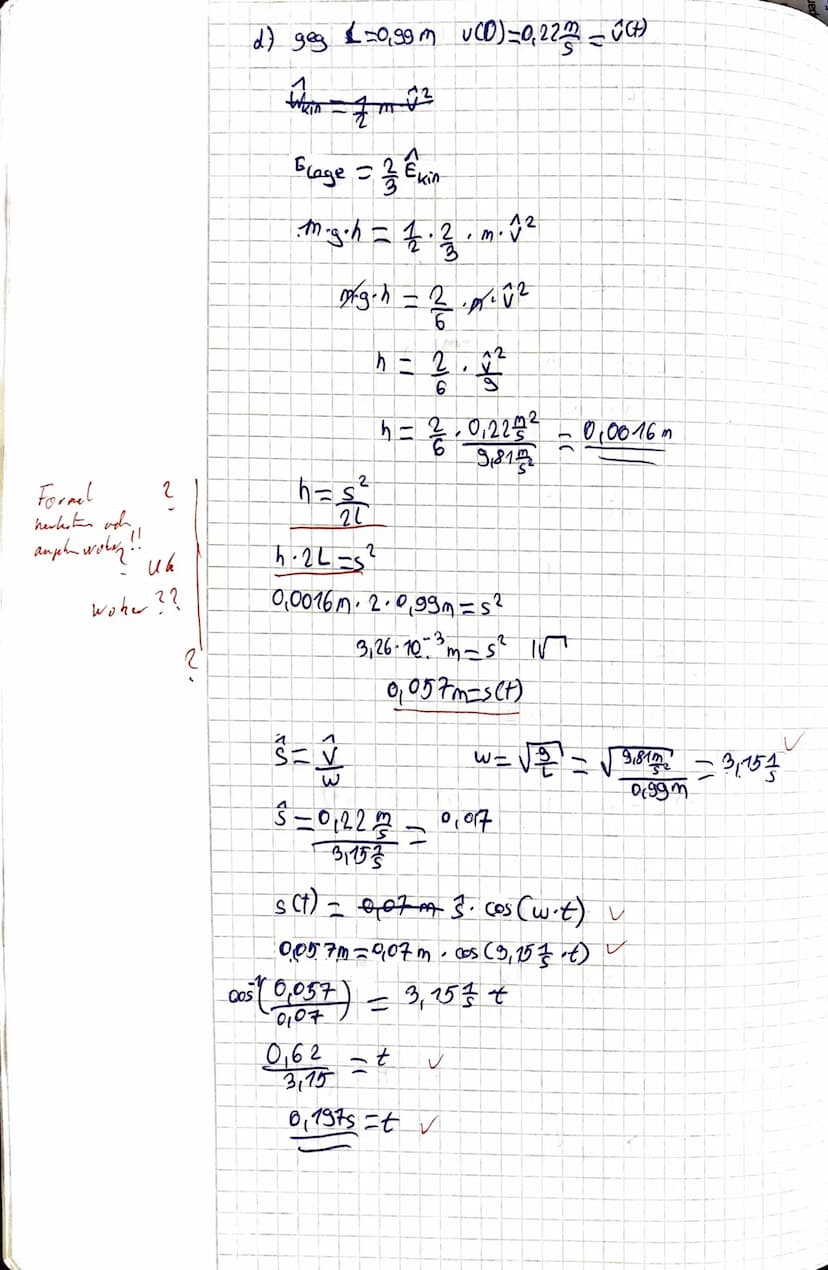 d) geg L=0,99m v(0)=0,22 m/s = v̂(t)
Ŵkin = 1/2 m v̂²
ELage = 2/3 Êkin
m·g·h = 1/2 · 2/3 · m · v̂²
m·g·h = 2/6 · m · v̂²
h = 2/6 · v̂²/g
h = 2/6 · 0,22 m/s² / 9,81 m/s² = 0,0016m
Formel ?
h = s²/2L
h·2L=s²
woher ??
0,0016m · 2 · 0,99m = s²
3,26·10⁻³m = s² |√
?
0,057m=s(t)
ŝ = v̂/w w = √g/L = √9,81 m/s² / 0,99m = 3,15 1/s ✓
ŝ = 0,22 m/s / 3,15 1/s = 0,07
s(t) = 0,07m ŝ · cos(w·t) ✓
0,057m = 0,07m · cos(3,15 1/s · t) ✓
cos⁻¹(0,057/0,07) = 3,15 1/s t
0,62/3,15 = t ✓
0,197s = t ✓